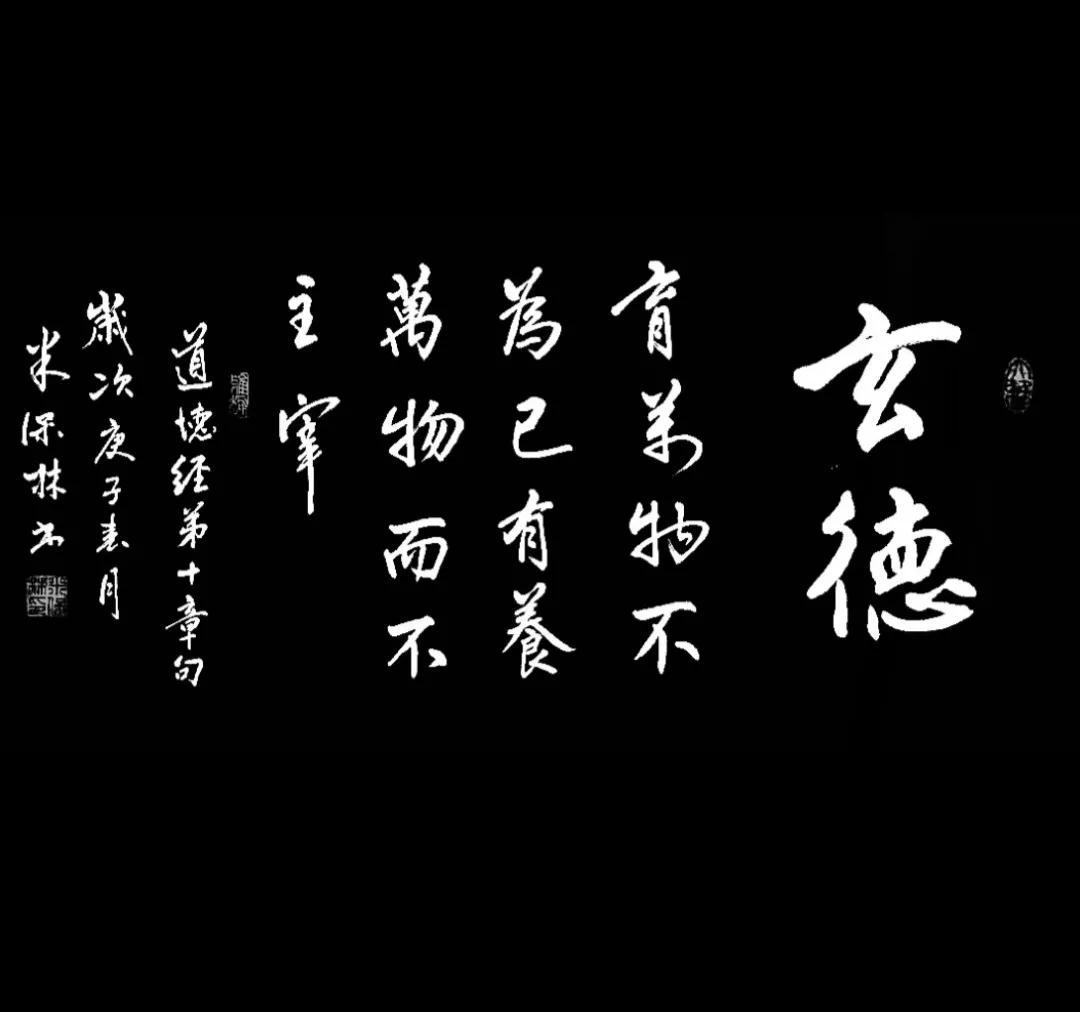 玄德
育万物不
為已有養
萬物而不
主宰
道德经第十章句
歲次庚子春月
米保林书